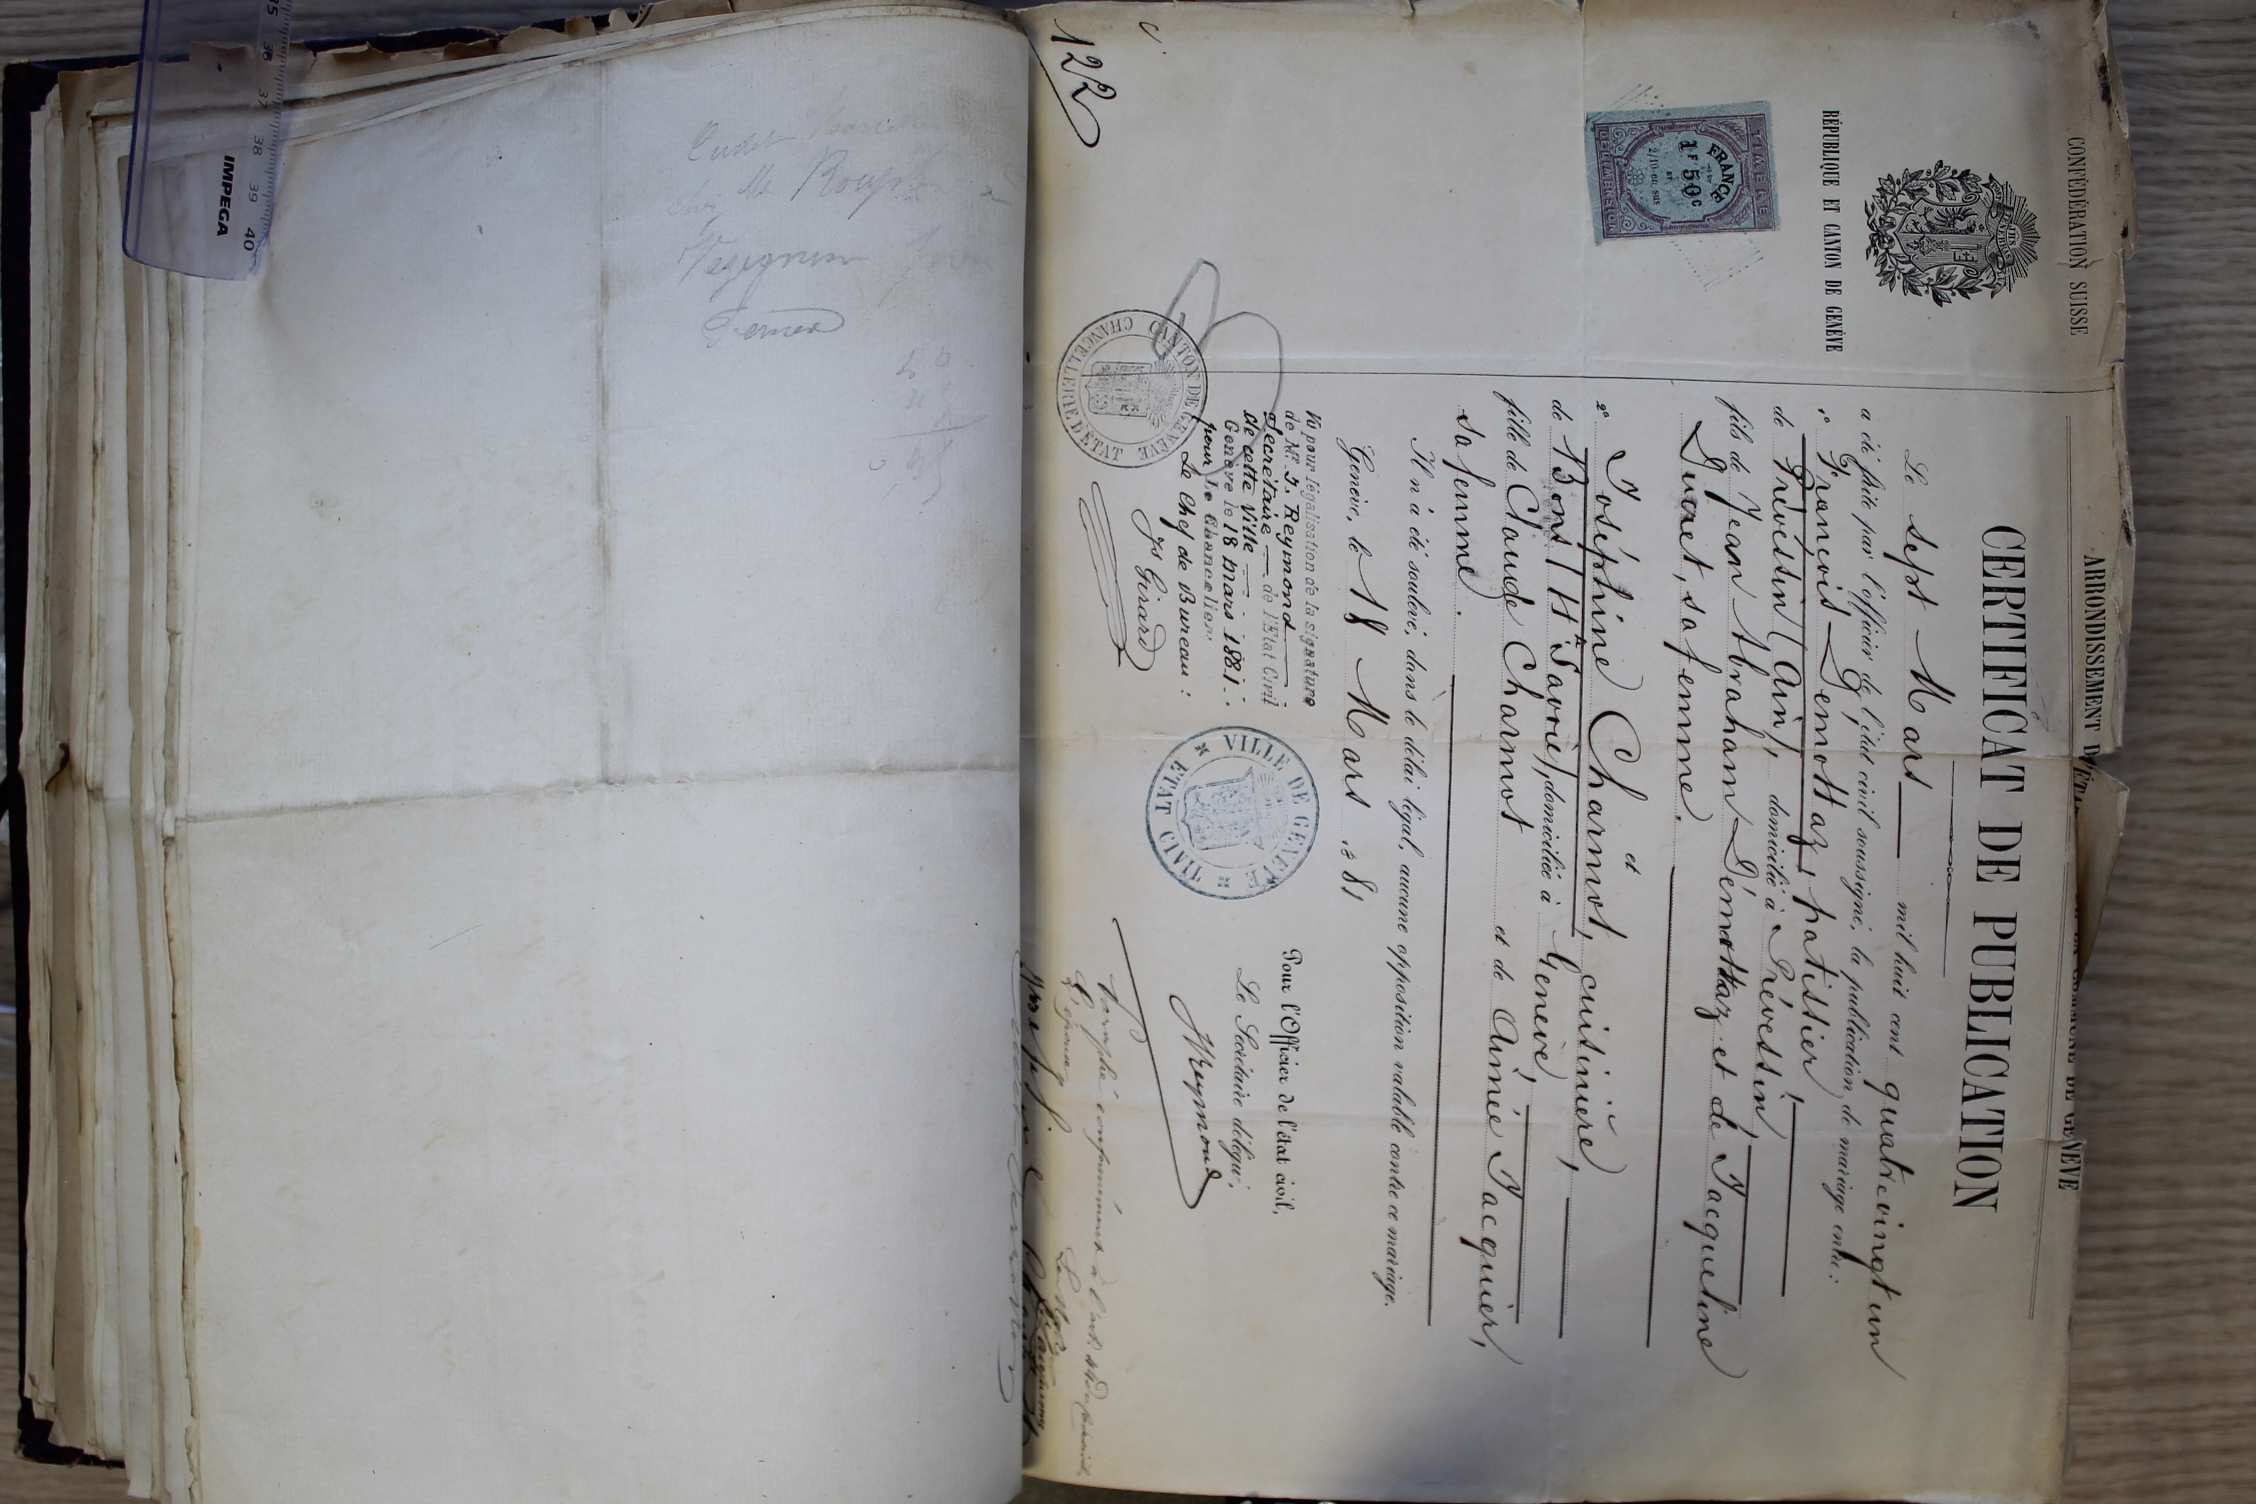 CONFÉDÉRATION SUISSE
RÉPUBLIQUE ET CANTON DE GENÈVE
TIMBRE
FRANCE
1F 50c
2/10 en sus
DIMENSION
ARRONDISSEMENT D'ÉTAT
DE GENÈVE
CERTIFICAT DE PUBLICATION
Le sept Mars mil huit cent quatrevingt un
a été faite par l'officier de l'état civil soussigné, la publication de mariage entre:
1º François Démottaz, patissier,
de Prévessin (Ain), domicilié à Prévessin,
fils de Jean Abraham Démottaz et de Jacqueline
Ducret, sa femme.
et
2º Joséphine Charmot, cuisinière,
de Bons (Hte Savoie), domiciliée à Genève,
fille de Claude Charmot et de Aimée Jacquier,
sa femme.
Il n'a été soulevé, dans le délai légal, aucune opposition valable contre ce mariage.
Genève, le 18 Mars 1881
Pour l'Officier de l'état civil,
Le Secrétaire délégué,
JReymond
VILLE DE GENÈVE
ETAT CIVIL
Vu pour légalisation de la signature
de Mr. J. Reymond
Secrétaire de l'Etat Civil
de cette Ville
Genève le 18 mars 1881.
pour Le Chancelier:
Le Chef de Bureau:
Js Girard
CANTON DE GENÈVE
CHANCELLERIE D'ÉTAT
122
Paraphé conformément à l'art.
L'épouse
chez Mr
IMPEGA
35 36 37 38 39 40